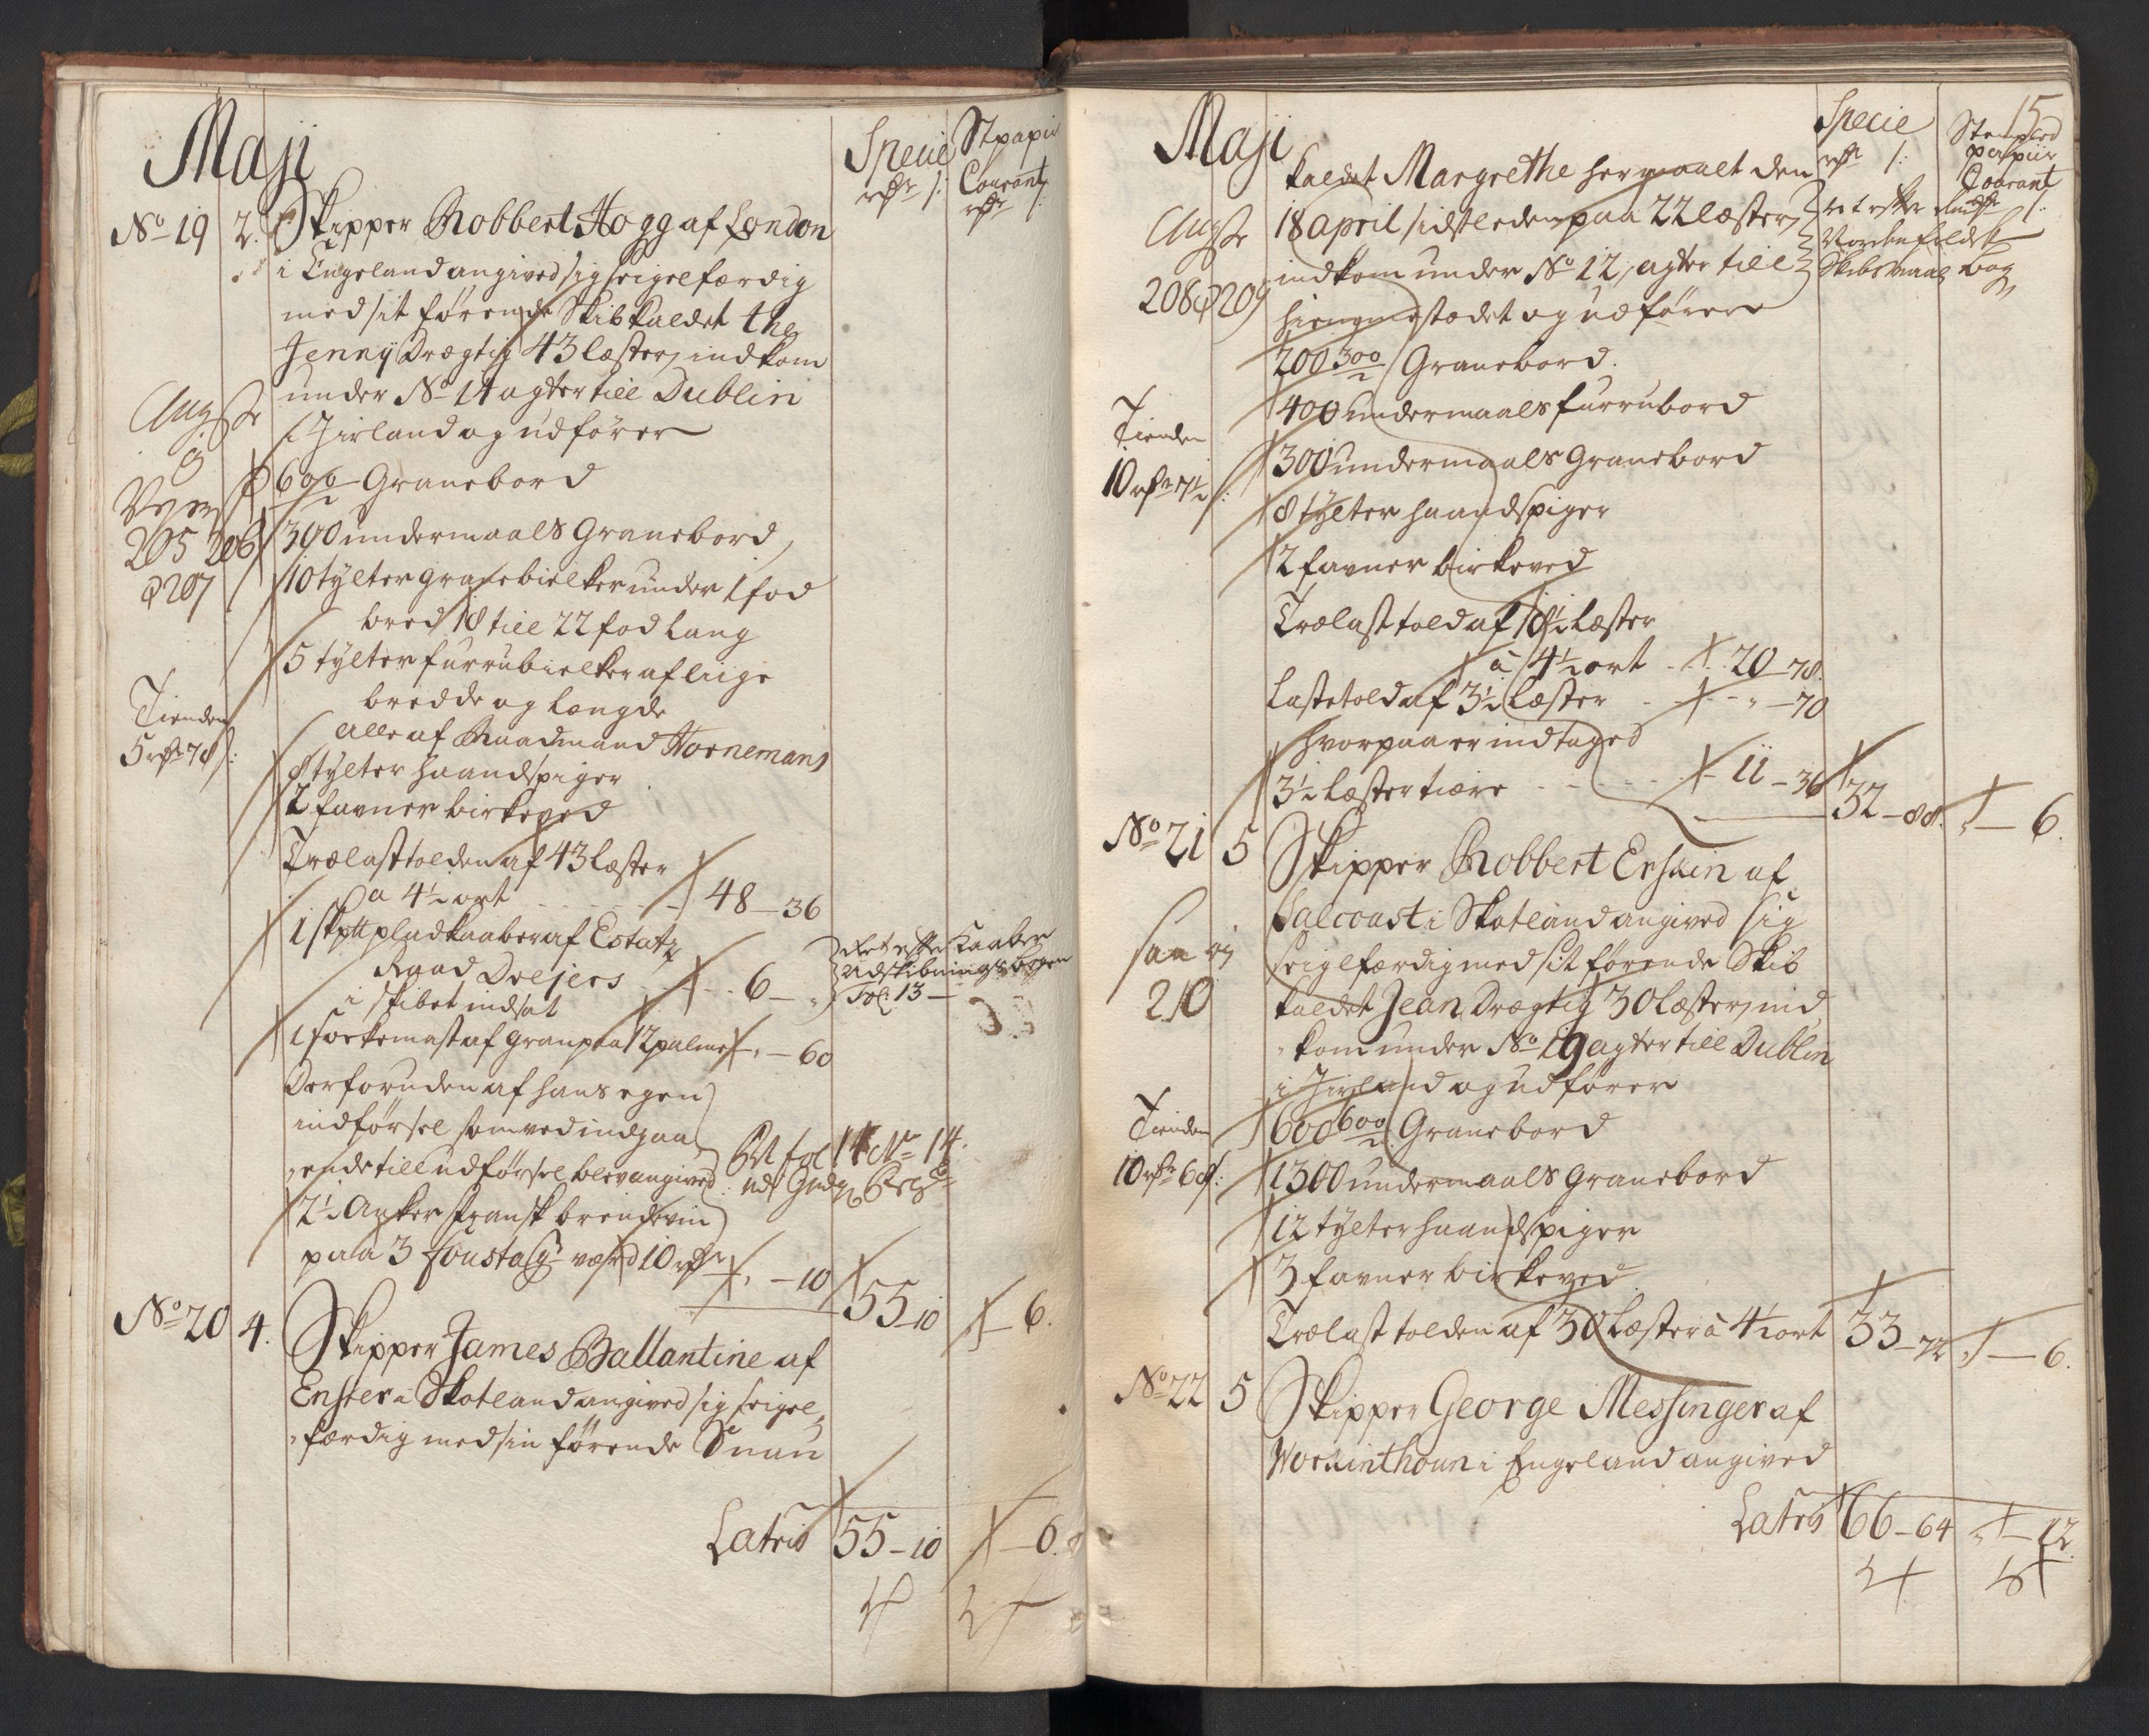 Maji
Specie
Stpapiir
rdr s:
Courant
rdr s:
No 19 2. Skipper Robbert Hogg af London
i Engeland angived sig seigelfærdig
med sit førende Skib kaldet the
Jenny Drægtig 43 læster, indkom
under No 14 agter till Dublin
i Jirland og udfører
600 Granebord
205 206
& 207
300 undermaals Granebord
10 tylter granebielker under 1 fod
bred 18 till 22 fod lang
5 tylter furrubielker af liige
bredde og længde
alle af Raadmand Hornemans
Tienden
5 rdr 78 s:
8 tylter haandspiger
2 favner birkeved
Trælasttolden af 43 læster
a 4½ ort 48 - 36
1 skptt pladkaaber af Estatz
Raad Drejers 6 - "
i skibet indsat
Kaaber
Udskibnings bogen
Fol: 13 -
1 forkemast af gran paa 12 palmer " - 60
Derforuden af hans egen
indførsel som ved indgaa-
ende till udførsel blev angived
fol 14 No 14.
2½ Anker fransk brendeviin
paa 3 foustager værd 10 rdr " - 10
55 - 10
" - 6.
No 20 4. Skipper James Ballantine af
Enster i Skotland angived sig seigel-
færdig med sin førende Snau
Latris 55 - 10 " - 6.
15
Maji
Specie
rdr s:
Stemped
papiir
Courant
kaldet Margrethe her maalt den
18 april sidstleden paa 22 læster,
indkom under No 12, agter till
hiemstædet og udfører
Nordenfieldsk
Skibsmaals bog
208 & 209
200 300 Granebord.
400 undermaals furrubord
Tienden
10 rdr 71½ s:
300 undermaals Granebord
8 tylter haandspiger
2 favner birkeved
Trælasttold af 18½ læster
a 4½ ort 20 - 78.
Lastetold af 3½ læster " - 70
hvorpaa er indtaged
3½ læster tiære 11 - 36
32 - 88. " - 6.
No 21 5 Skipper Robbert Erskin af
Salcoast i Skotland angived sig
seigelfærdig med sit førende Skib
210
kaldet Jean Drægtig 30 læster, ind-
kom under No 19 agter till Dublin
i Jirland og udfører
Tienden
10 rdr 68 s:
600 600 Granebord
1300 undermaals Granebord
12 tylter haandspiger
3 favner birkeved
Trælasttolden af 30 læster a 4½ ort 33 - 72 " - 6.
No 22 5 Skipper George Messinger af
Workinthoun i Engeland angived
Latris 66 - 64 " - 12.